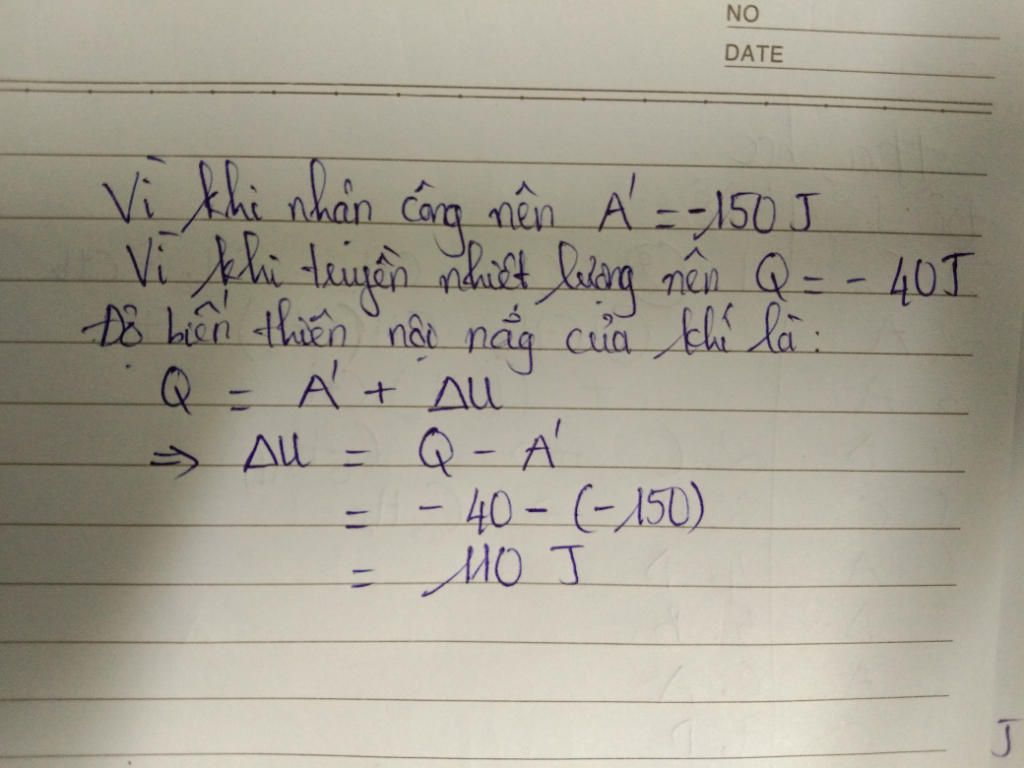 NO
DATE
Vì khi nhận công nên A' = -150 J
Vì khi truyền nhiệt lượng nên Q = - 40J
Độ biến thiên nội năng của khí là:
Q = A' + ΔU
⇒ ΔU = Q - A'
= - 40 - (-150)
= 110 J
J